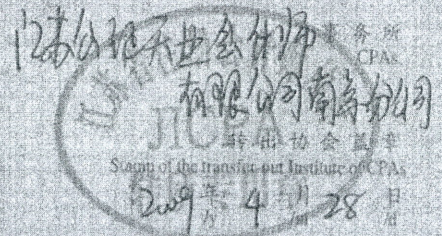 江苏公证天业会计师事务所
CPAs
有限公司南京分公司
JICPA
转出协会盖章
Stamp of the transfer-out Institute of CPAs
2009年 4月 28日
/y /m /d